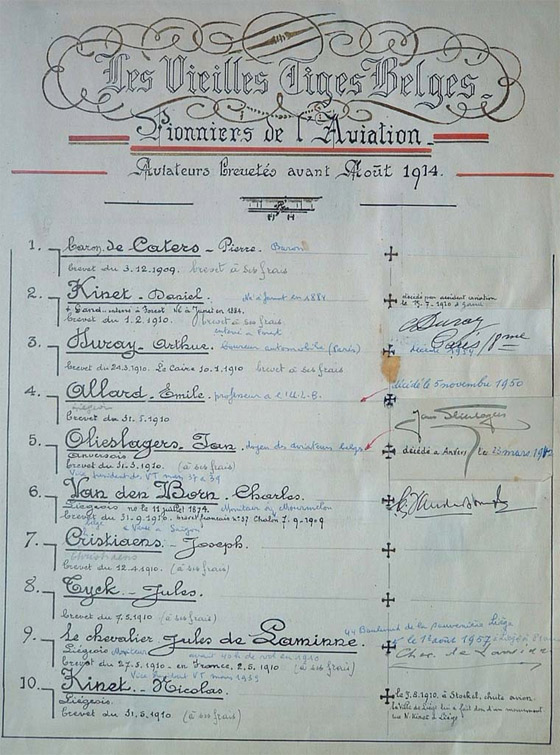 Les Vieilles Tiges Belges.
Pionniers de l'Aviation.
Aviateurs brevetés avant Août 1914.
1. Baron de Caters - Pierre. Baron
brevet du 3.12.1909. brevet à ses frais
2. Kinet - Daniel. Né à Jumet en 1884
à Gand - enterré à Forest Né à Jumet en 1884.
brevet du 1.2.1910. brevet à ses frais
enterré à Forest
décédé par accident aviation
le 15.7.1910 à Gand
3. Duray - Arthur. Coureur automobile (Paris)
brevet du Le Caire brevet à ses frais
Duray
Paris
décédé 1954
4. Allard - Émile. professeur à l'U.L.B.
Liégeois
brevet du 31.5.1910
décédé le 5 novembre 1950
5. Olieslagers - Jan. doyen des aviateurs belges
anversois
brevet du 31.3.1910. (à ses frais)
Vice président des VT mars 37 à 39
Jan Olieslagers
décédé à Anvers le 23 mars
6. Van den Born - Charles.
Liégeois né le 11 juillet 1874. Moniteur à Mourmelon
brevet du brevet français n°37 Chalon
à Saïgon
7. Cristiaens - Joseph.
Christiaens
brevet du 12.4.1910. (à ses frais)
8. Tyck - Jules.
brevet du 7.5.1910 (à ses frais)
9. Le chevalier Jules de Laminne.
Liégeois
brevet du 27.5.1910 - en France, (à ses frais)
Vice Président VT mars 1939
44 Boulevard de la Sauvenière Liège
le 1er août 1957 à Liège
Chev. de Laminne
10. Kinet - Nicolas.
Liégeois.
brevet du 31.5.1910 (à ses frais)
le 3.8.1910, à Stockel, chute avion.
la Ville de Liège lui a fait don d'un monument
rue N. Kinet à Liège